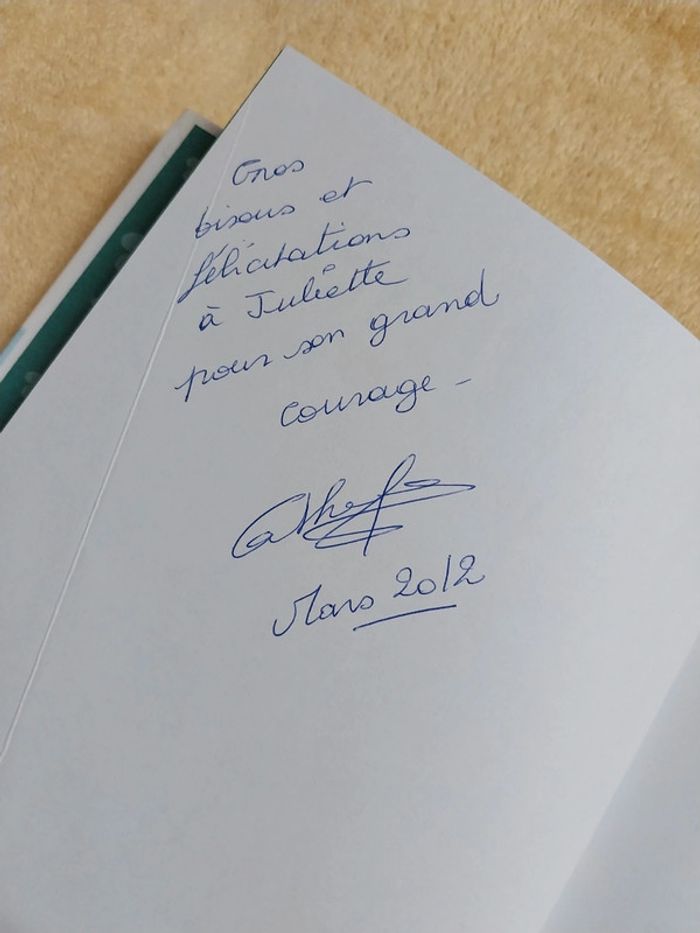 Gros
bisous et
félicitations
à Juliette
pour son grand
courage -
Mars 2012